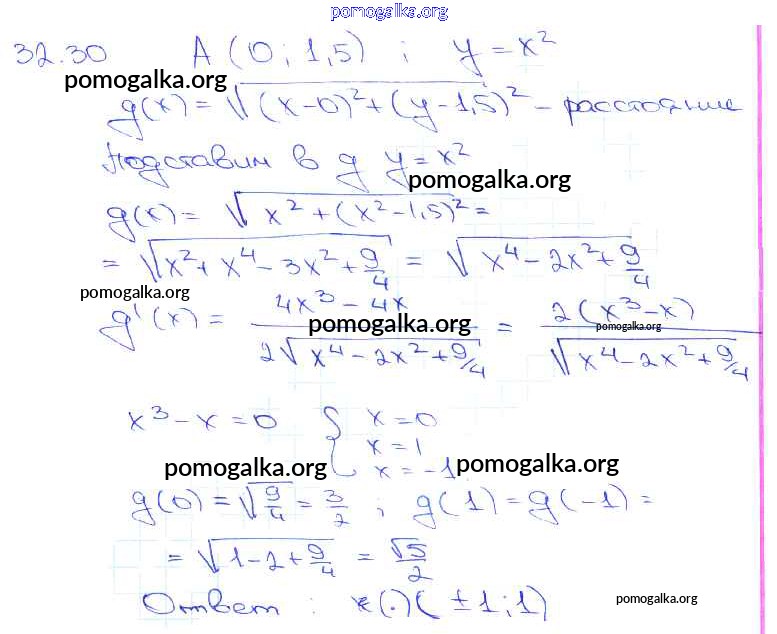 pomogalka.org
32.30 A (0; 1,5) ; y = x²
pomogalka.org
g(x) = √((x-0)² + (y-1,5)²) - расстояние
Подставим в g y = x²
pomogalka.org
g(x) = √(x² + (x² - 1,5)²) =
= √(x² + x⁴ - 3x² + 9/4) = √(x⁴ - 2x² + 9/4)
pomogalka.org
g'(x) = (4x³ - 4x)/(2√(x⁴ - 2x² + 9/4)) = 2(x³ - x)/√(x⁴ - 2x² + 9/4)
pomogalka.org pomogalka.org
x³ - x = 0 { x = 0
x = 1
x = -1
pomogalka.org pomogalka.org
g(0) = √(9/4) = 3/2 ; g(1) = g(-1) =
= √(1 - 2 + 9/4) = √5/2
Ответ : (·)(±1; 1)
pomogalka.org